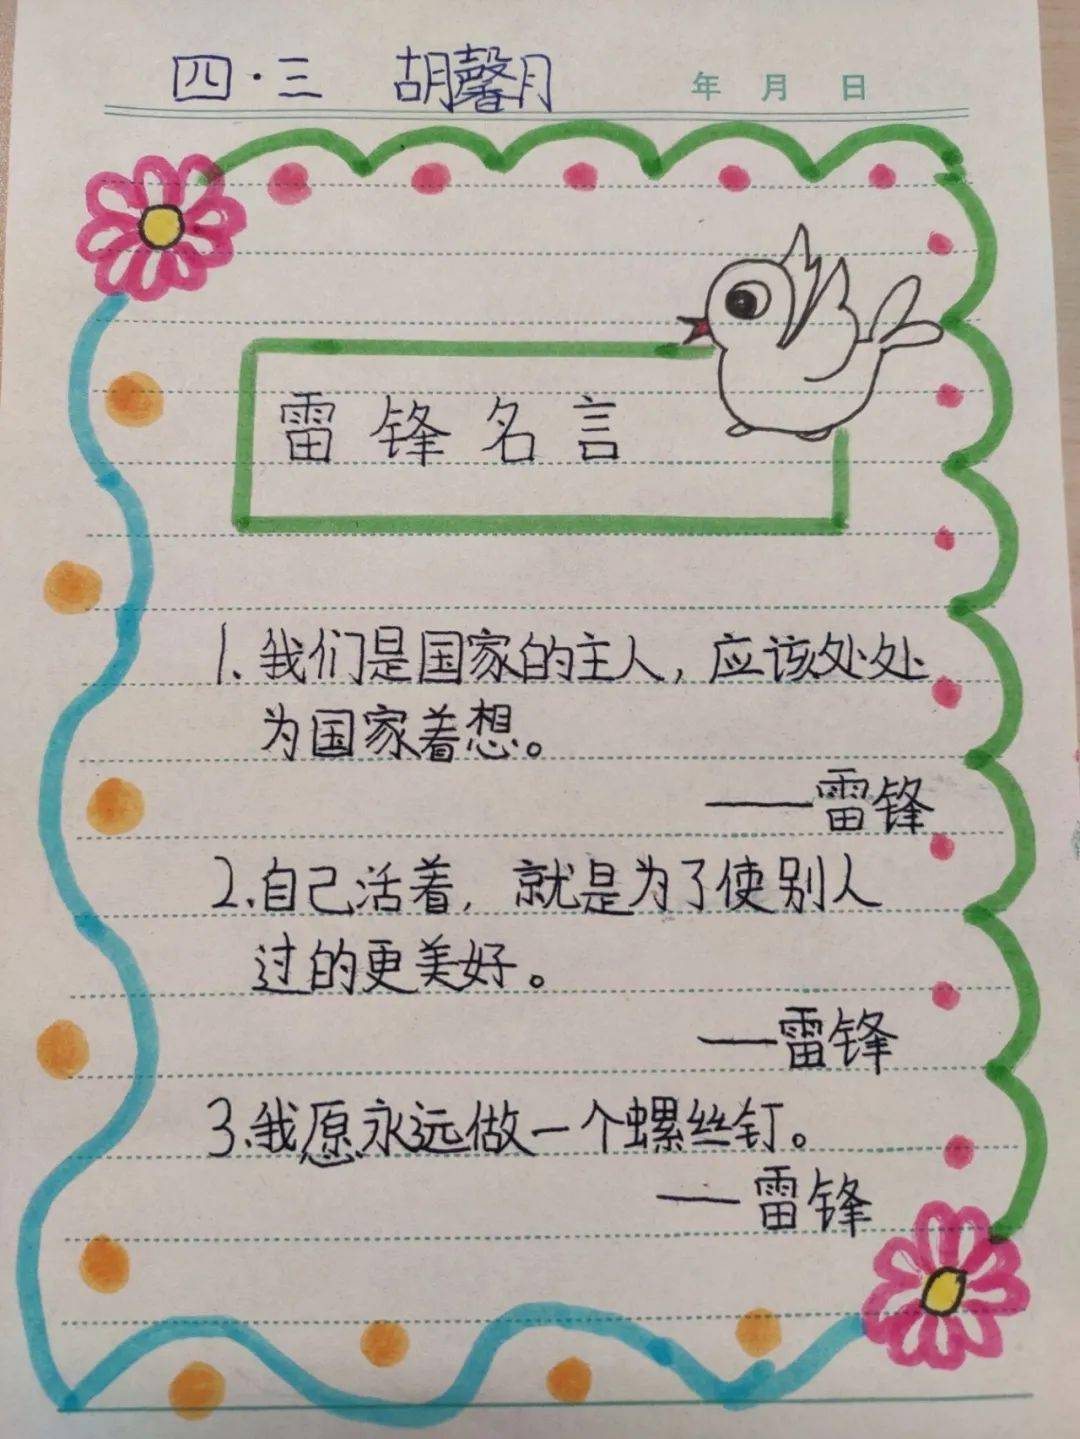 四·三 胡馨月 年 月 日
雷锋名言
1.我们是国家的主人，应该处处
为国家着想。
——雷锋
2.自己活着，就是为了使别人
过的更美好。
——雷锋
3.我愿永远做一个螺丝钉。
——雷锋